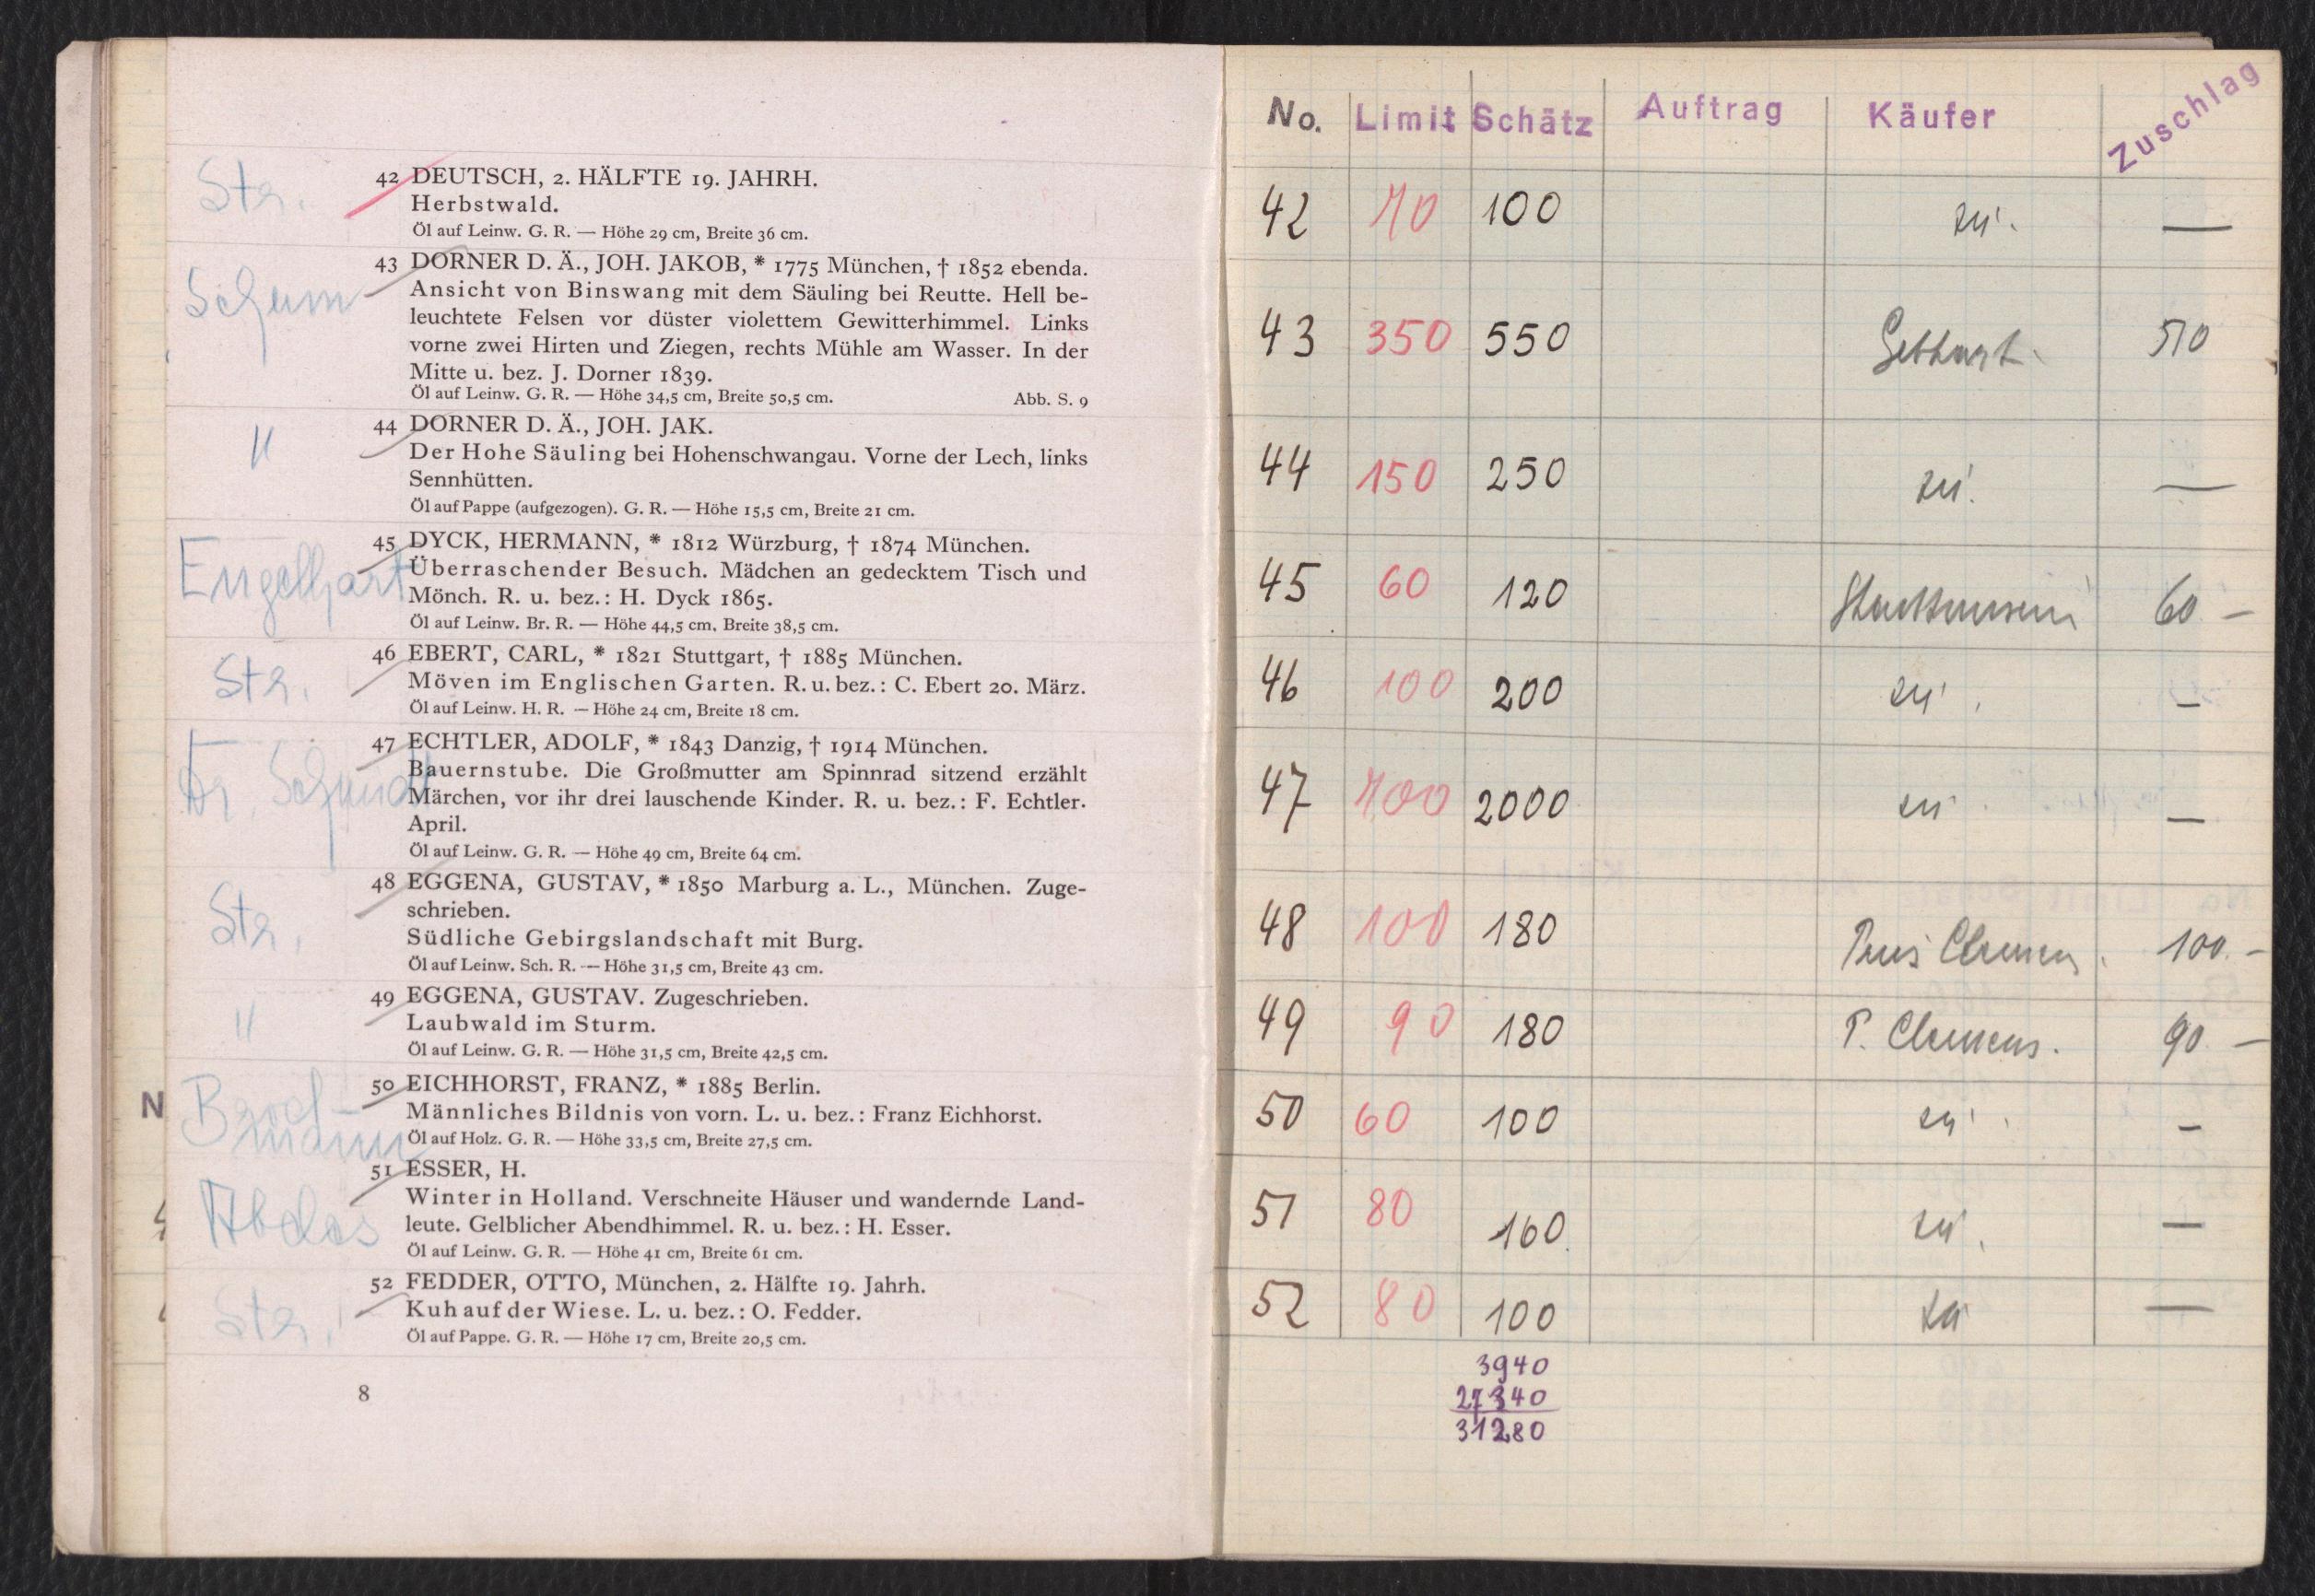 Str.
42 DEUTSCH, 2. HÄLFTE 19. JAHRH.
Herbstwald.
Öl auf Leinw. G. R. — Höhe 29 cm, Breite 36 cm.
43 DORNER D. Ä., JOH. JAKOB, * 1775 München, † 1852 ebenda.
Ansicht von Binswang mit dem Säuling bei Reutte. Hell be-
leuchtete Felsen vor düster violettem Gewitterhimmel. Links
vorne zwei Hirten und Ziegen, rechts Mühle am Wasser. In der
Mitte u. bez. J. Dorner 1839.
Öl auf Leinw. G. R. — Höhe 34,5 cm, Breite 50,5 cm. Abb. S. 9
"
44 DORNER D. Ä., JOH. JAK.
Der Hohe Säuling bei Hohenschwangau. Vorne der Lech, links
Sennhütten.
Öl auf Pappe (aufgezogen). G. R. — Höhe 15,5 cm, Breite 21 cm.
Engelhart
45 DYCK, HERMANN, * 1812 Würzburg, † 1874 München.
Überraschender Besuch. Mädchen an gedecktem Tisch und
Mönch. R. u. bez.: H. Dyck 1865.
Öl auf Leinw. Br. R. — Höhe 44,5 cm, Breite 38,5 cm.
Str.
46 EBERT, CARL, * 1821 Stuttgart, † 1885 München.
Möven im Englischen Garten. R. u. bez.: C. Ebert 20. März.
Öl auf Leinw. H. R. — Höhe 24 cm, Breite 18 cm.
47 ECHTLER, ADOLF, * 1843 Danzig, † 1914 München.
Bauernstube. Die Großmutter am Spinnrad sitzend erzählt
Märchen, vor ihr drei lauschende Kinder. R. u. bez.: F. Echtler.
April.
Öl auf Leinw. G. R. — Höhe 49 cm, Breite 64 cm.
Str.
48 EGGENA, GUSTAV, * 1850 Marburg a. L., München. Zuge-
schrieben.
Südliche Gebirgslandschaft mit Burg.
Öl auf Leinw. Sch. R. — Höhe 31,5 cm, Breite 43 cm.
"
49 EGGENA, GUSTAV. Zugeschrieben.
Laubwald im Sturm.
Öl auf Leinw. G. R. — Höhe 31,5 cm, Breite 42,5 cm.
50 EICHHORST, FRANZ, * 1885 Berlin.
Männliches Bildnis von vorn. L. u. bez.: Franz Eichhorst.
Öl auf Holz. G. R. — Höhe 33,5 cm, Breite 27,5 cm.
51 ESSER, H.
Winter in Holland. Verschneite Häuser und wandernde Land-
leute. Gelblicher Abendhimmel. R. u. bez.: H. Esser.
Öl auf Leinw. G. R. — Höhe 41 cm, Breite 61 cm.
Str.
52 FEDDER, OTTO, München, 2. Hälfte 19. Jahrh.
Kuh auf der Wiese. L. u. bez.: O. Fedder.
Öl auf Pappe. G. R. — Höhe 17 cm, Breite 20,5 cm.
8
N
No. Limit Schätz Auftrag Käufer Zuschlag
42 70 100 zu. —
43 350 550 Gebhart. 510
44 150 250 zu. —
45 60 120 60 —
46 100 200 zu. —
47 700 2000 zu —
48 100 180 Clemens. 100.—
49 90 180 P. Clemens. 90 —
50 60 100 zu. —
51 80 160. zu. —
52 80 100 zu —
3940
27340
31280